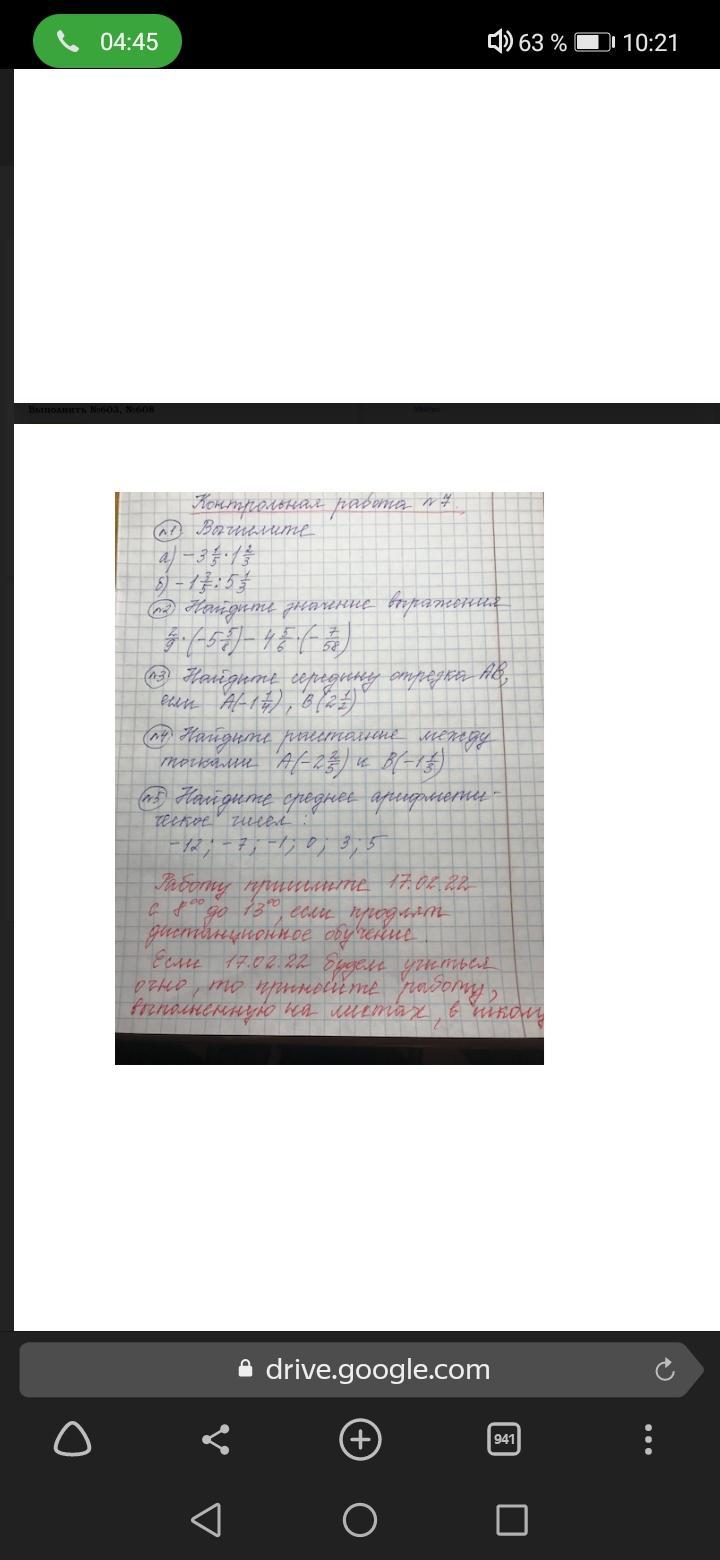 04:45 63 % 10:21
Выполнить №603, №608
Контрольная работа №7.
№1 Вычислите
а) -3 1/5 · 1 2/3
б) -1 3/5 : 5 1/3
№2 Найдите значение выражения
2/9 · (-5 5/8) - 4 5/6 · (-7/58)
№3 Найдите середину отрезка АВ,
если А(-1 1/4), В(2 1/2)
№4 Найдите расстояние между
точками А(-2 2/5) и В(-1 1/3)
№5 Найдите среднее арифмети-
ческое чисел :
-12; -7; -1; 0; 3; 5
Работу пришлите 17.02.22
с 8⁰⁰ до 13⁰⁰, если продлят
дистанционное обучение.
Если 17.02.22 будем учиться
очно, то приносите работу,
выполненную на листах, в школу
drive.google.com
941